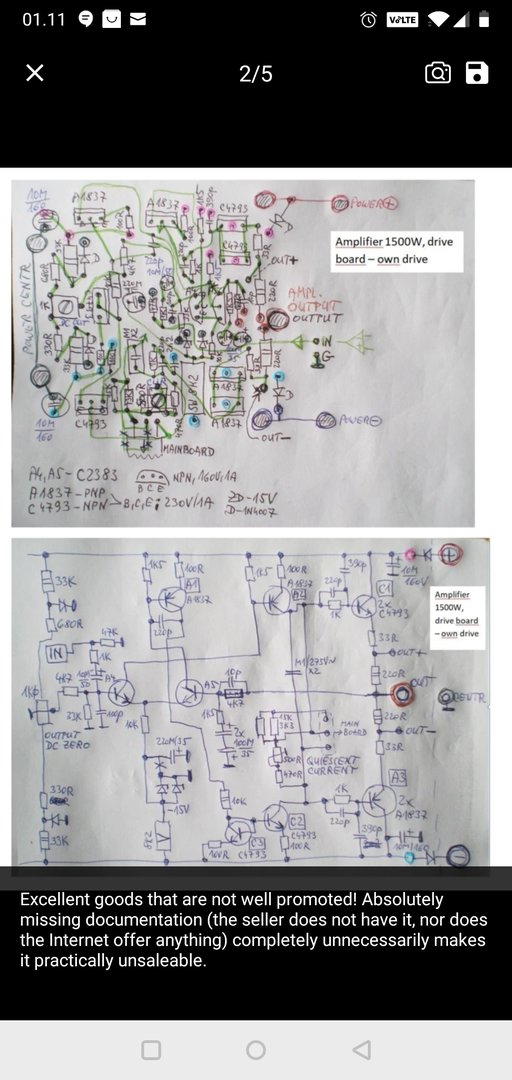 01.11
VoLTE
2/5
10M
160
A1837
A1837
C4793
C4793
POWER⊕
Amplifier 1500W, drive
board – own drive
POWER CENTR
680R
100R
220p
OUT+
220R
AMPL.
OUTPUT
OUTPUT
IN
G
330R
8K2
A1837
A1837
C4793
10M
160
OUT-
POWER⊖
MAINBOARD
A4, A5 - C2383
B C E
NPN, 160V, 1A
A1837 - PNP
C4793 - NPN
B, C, E; 230V/1A
ZD-15V
D-1N4007
33K
1K5
100R
A1
A1837
220p
1K5
100R
A1837
220p
1K
390p
C1
2x
C4793
10M
160V
Amplifier
1500W,
drive board
– own drive
680R
IN
47K
1K
4K7
10M
50
33K
100p
1K0
OUTPUT
DC ZERO
A4
A5
10p
4K7
M1/275V~
x2
33R
OUT+
220R
OUT
CENTR
220R
OUT-
33R
10K
1K5
2x
100M
35
15K
3K3
MAIN
BOARD
500R
470R
QUIESCENT
CURRENT
220M/35
-15V
8K2
330R
33K
10K
C3
C4793
100R
C2
C4793
100R
1K
220p
A3
2x
A1837
390p
10M/160
Excellent goods that are not well promoted! Absolutely
missing documentation (the seller does not have it, nor does
the Internet offer anything) completely unnecessarily makes
it practically unsaleable.